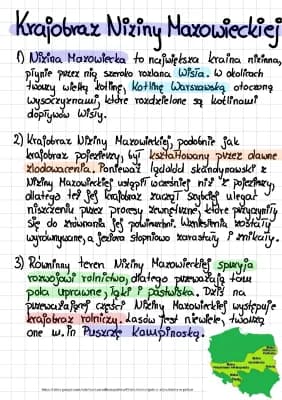 Krajobraz Niziny Mazowieckiej
1) Nizina Mazowiecka to największa kraina nizinna,
płynie przez nią szeroko rozlana Wisła. W okolicach
tworzy wielką kotlinę, Kotlinę Warszawską otoczoną
wysoczyznami, które rozdzielone są kotlinami
dopływów Wisły.
2) Krajobraz Niziny Mazowieckiej, podobnie jak
krajobraz pojezierzy, był kształtowany przez dawne
zlodowacenia. Ponieważ lądolód skandynawski z
Niziny Mazowieckiej ustąpił wcześniej niż z pojezierzy,
dlatego też jej krajobraz zaczął szybciej ulegać
niszczeniu przez procesy zewnętrzne, które przyczyniły
się do zrównania jej powierzchni. Wzniesienia zostały
wyrównywane, a jeziora stopniowo zarastały i znikały.
3) Równinny teren Niziny Mazowieckiej sprzyja
rozwojowi rolnictwa, dlatego przeważają tam
pola uprawne, łąki i pastwiska. Dziś na
przeważającej części Niziny Mazowieckiej występuje
krajobraz rolniczy. Lasów jest niewiele, tworzą
one m.in Puszczę Kampinoską.